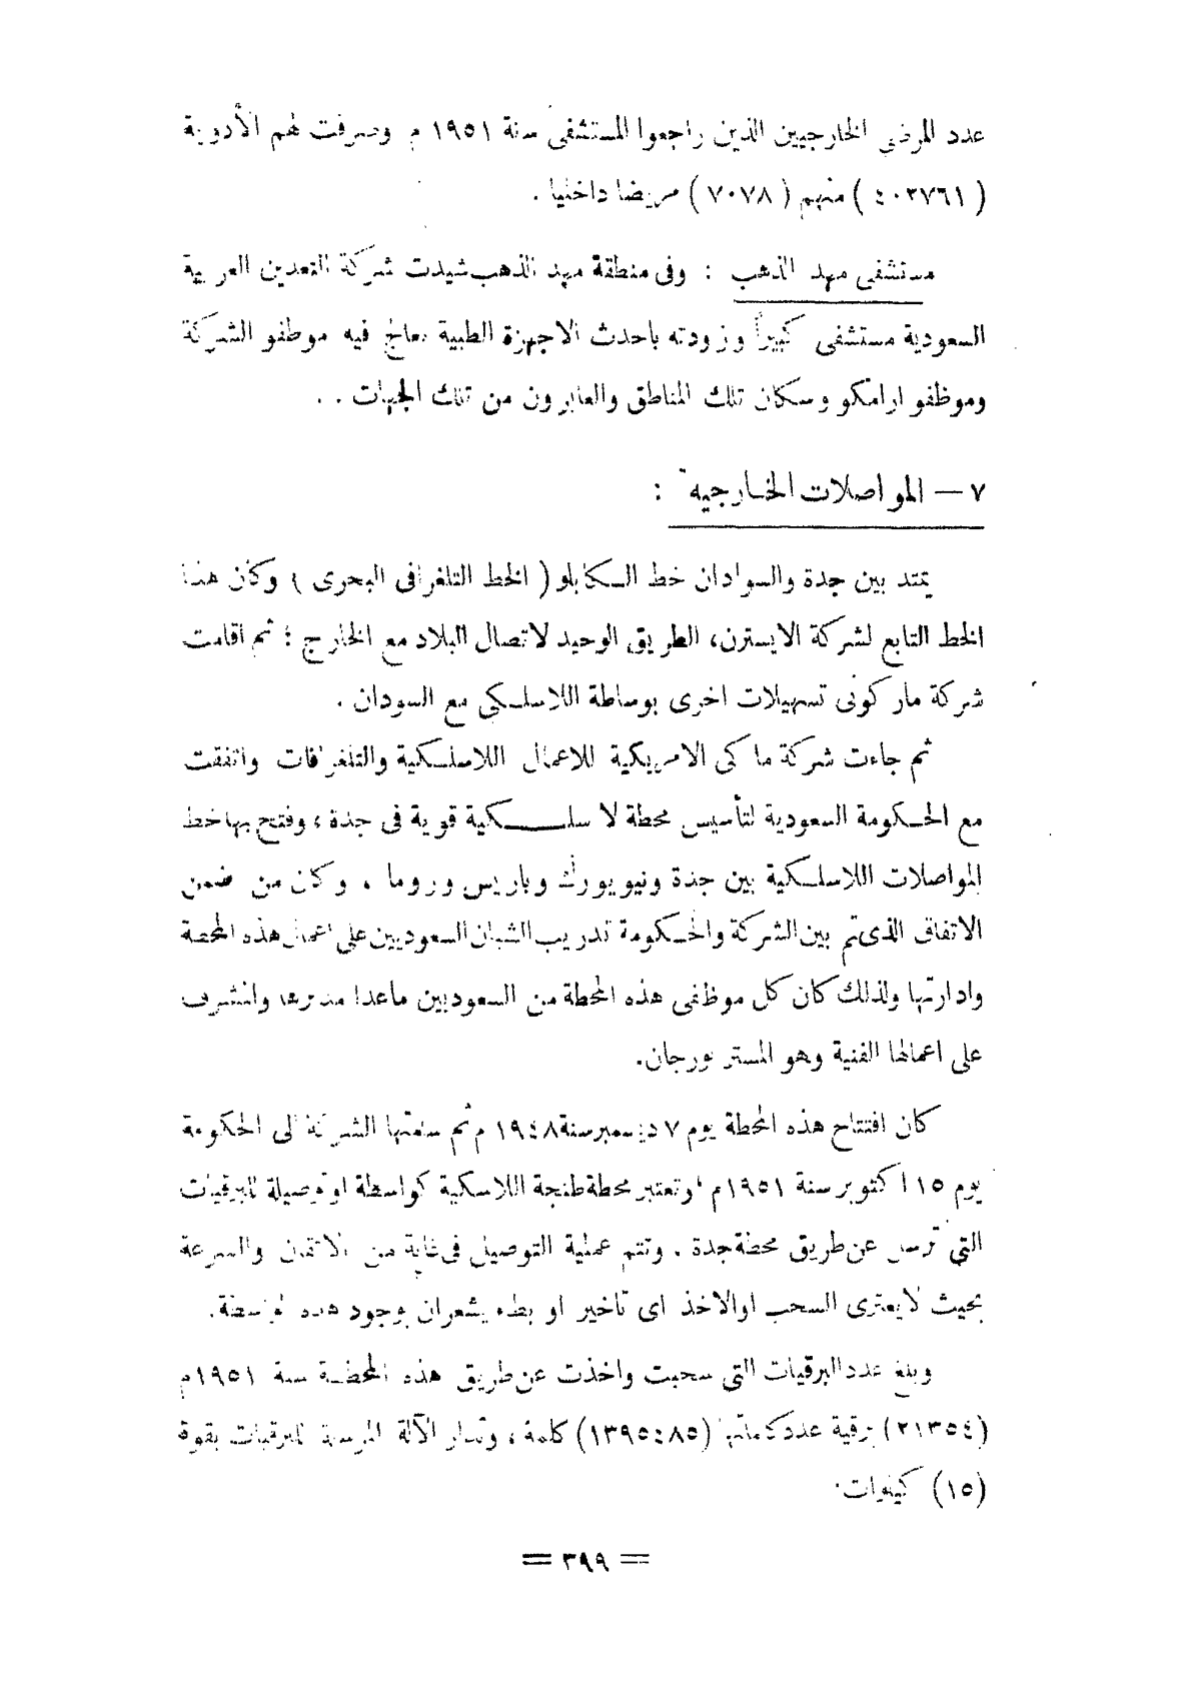 عدد المرضى الخارجيين الذين راجعوا المستشفى سنة ١٩٥١ م وصرفت لهم الأدوية
( ٤٠٣٧٦١ ) منهم ( ٧٠٧٨ ) مريضا داخليا .
مستشفى مهد الذهب : وفى منطقة مهد الذهب شيدت شركة التعدين العربية
السعودية مستشفى كبيراً وزودته باحدث الاجهزة الطبية يعالج فيه موظفو الشركة
وموظفو ارامكو وسكان تلك المناطق والعابرون من تلك الجهات . .
٧ — المواصلات الخارجية :
يمتد بين جدة والسوادان خط الكابلو ( الخط التلغرافى البحرى ) وكان هذا
الخط التابع لشركة الايسترن، الطريق الوحيد لاتصال البلاد مع الخارج ؛ ثم اقامت
شركة ماركونى تسهيلات اخرى بوساطة اللاسلكى مع السودان .
ثم جاءت شركة ماكى الامريكية للاعمال اللاسلكية والتلغرافات واتفقت
مع الحكومة السعودية لتأسيس محطة لاسلكية قوية فى جدة ، وفتح بها خط
المواصلات اللاسلكية بين جدة ونيويورك وباريس وروما ، وكان من ضمن
الاتفاق الذى تم بين الشركة والحكومة تدريب الشبان السعوديين على اعمال هذه المحطة
وادارتها ولذلك كان كل موظفى هذه المحطة من السعوديين ماعدا مديرها والمشرف
على اعمالها الفنية وهو المستر بورجان.
كان افتتاح هذه المحطة يوم ٧ ديسمبر سنة ١٩٤٨ م ثم سلمتها الشركة الى الحكومة
يوم ١٥ اكتوبر سنة ١٩٥١م ، وتعتبر محطة طنجة اللاسكية كواسطة او توصيلة للبرقيات
التى ترسل عن طريق محطة جدة . وتتم عملية التوصيل فى غاية من الاتقان والسرعة
بحيث لايعترى السحب اوالاخذ اى تاخير او بطء يشعران بوجود هذه الواسطة.
وبلغ عدد البرقيات التى سحبت واخذت عن طريق هذه المحطة سنة ١٩٥١م
(٢١٣٥٤) برقية عدد كلماتها (١٣٩٥٤٨٥) كلمة ، وتدار الآلة المرسلة للبرقيات بقوة
(١٥) كيلوات.
= ٣٩٩ =